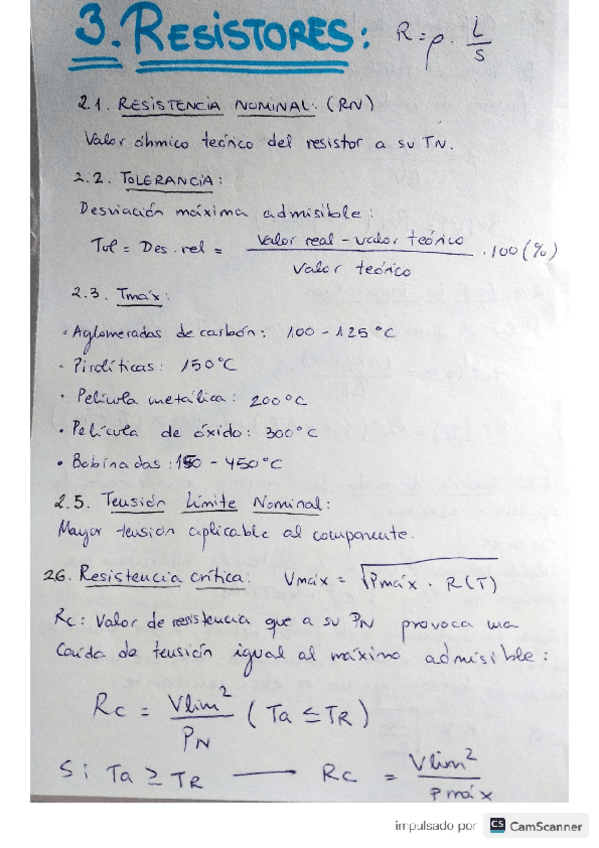 3. RESISTORES: R = ρ · L/S
2.1. RESISTENCIA NOMINAL: (RN)
Valor óhmico teórico del resistor a su TN.
2.2. TOLERANCIA:
Desviación máxima admisible:
Tol = Des. rel = (Valor real - valor teórico / Valor teórico) · 100 (%)
2.3. Tmáx:
· Aglomeradas de carbón: 100 - 125 °C
· Pirolíticas: 150 °C
· Película metálica: 200 °C
· Película de óxido: 300 °C
· Bobinadas: 150 - 450 °C
2.5. Tensión Límite Nominal:
Mayor tensión aplicable al componente.
26. Resistencia crítica: Vmáx = √(Pmáx · R(T))
Rc: Valor de resistencia que a su PN provoca una
caída de tensión igual al máximo admisible:
Rc = Vlim²/PN (Ta ≤ TR)
Si Ta ≥ TR — Rc = Vlim²/Pmáx
impulsado por CS CamScanner